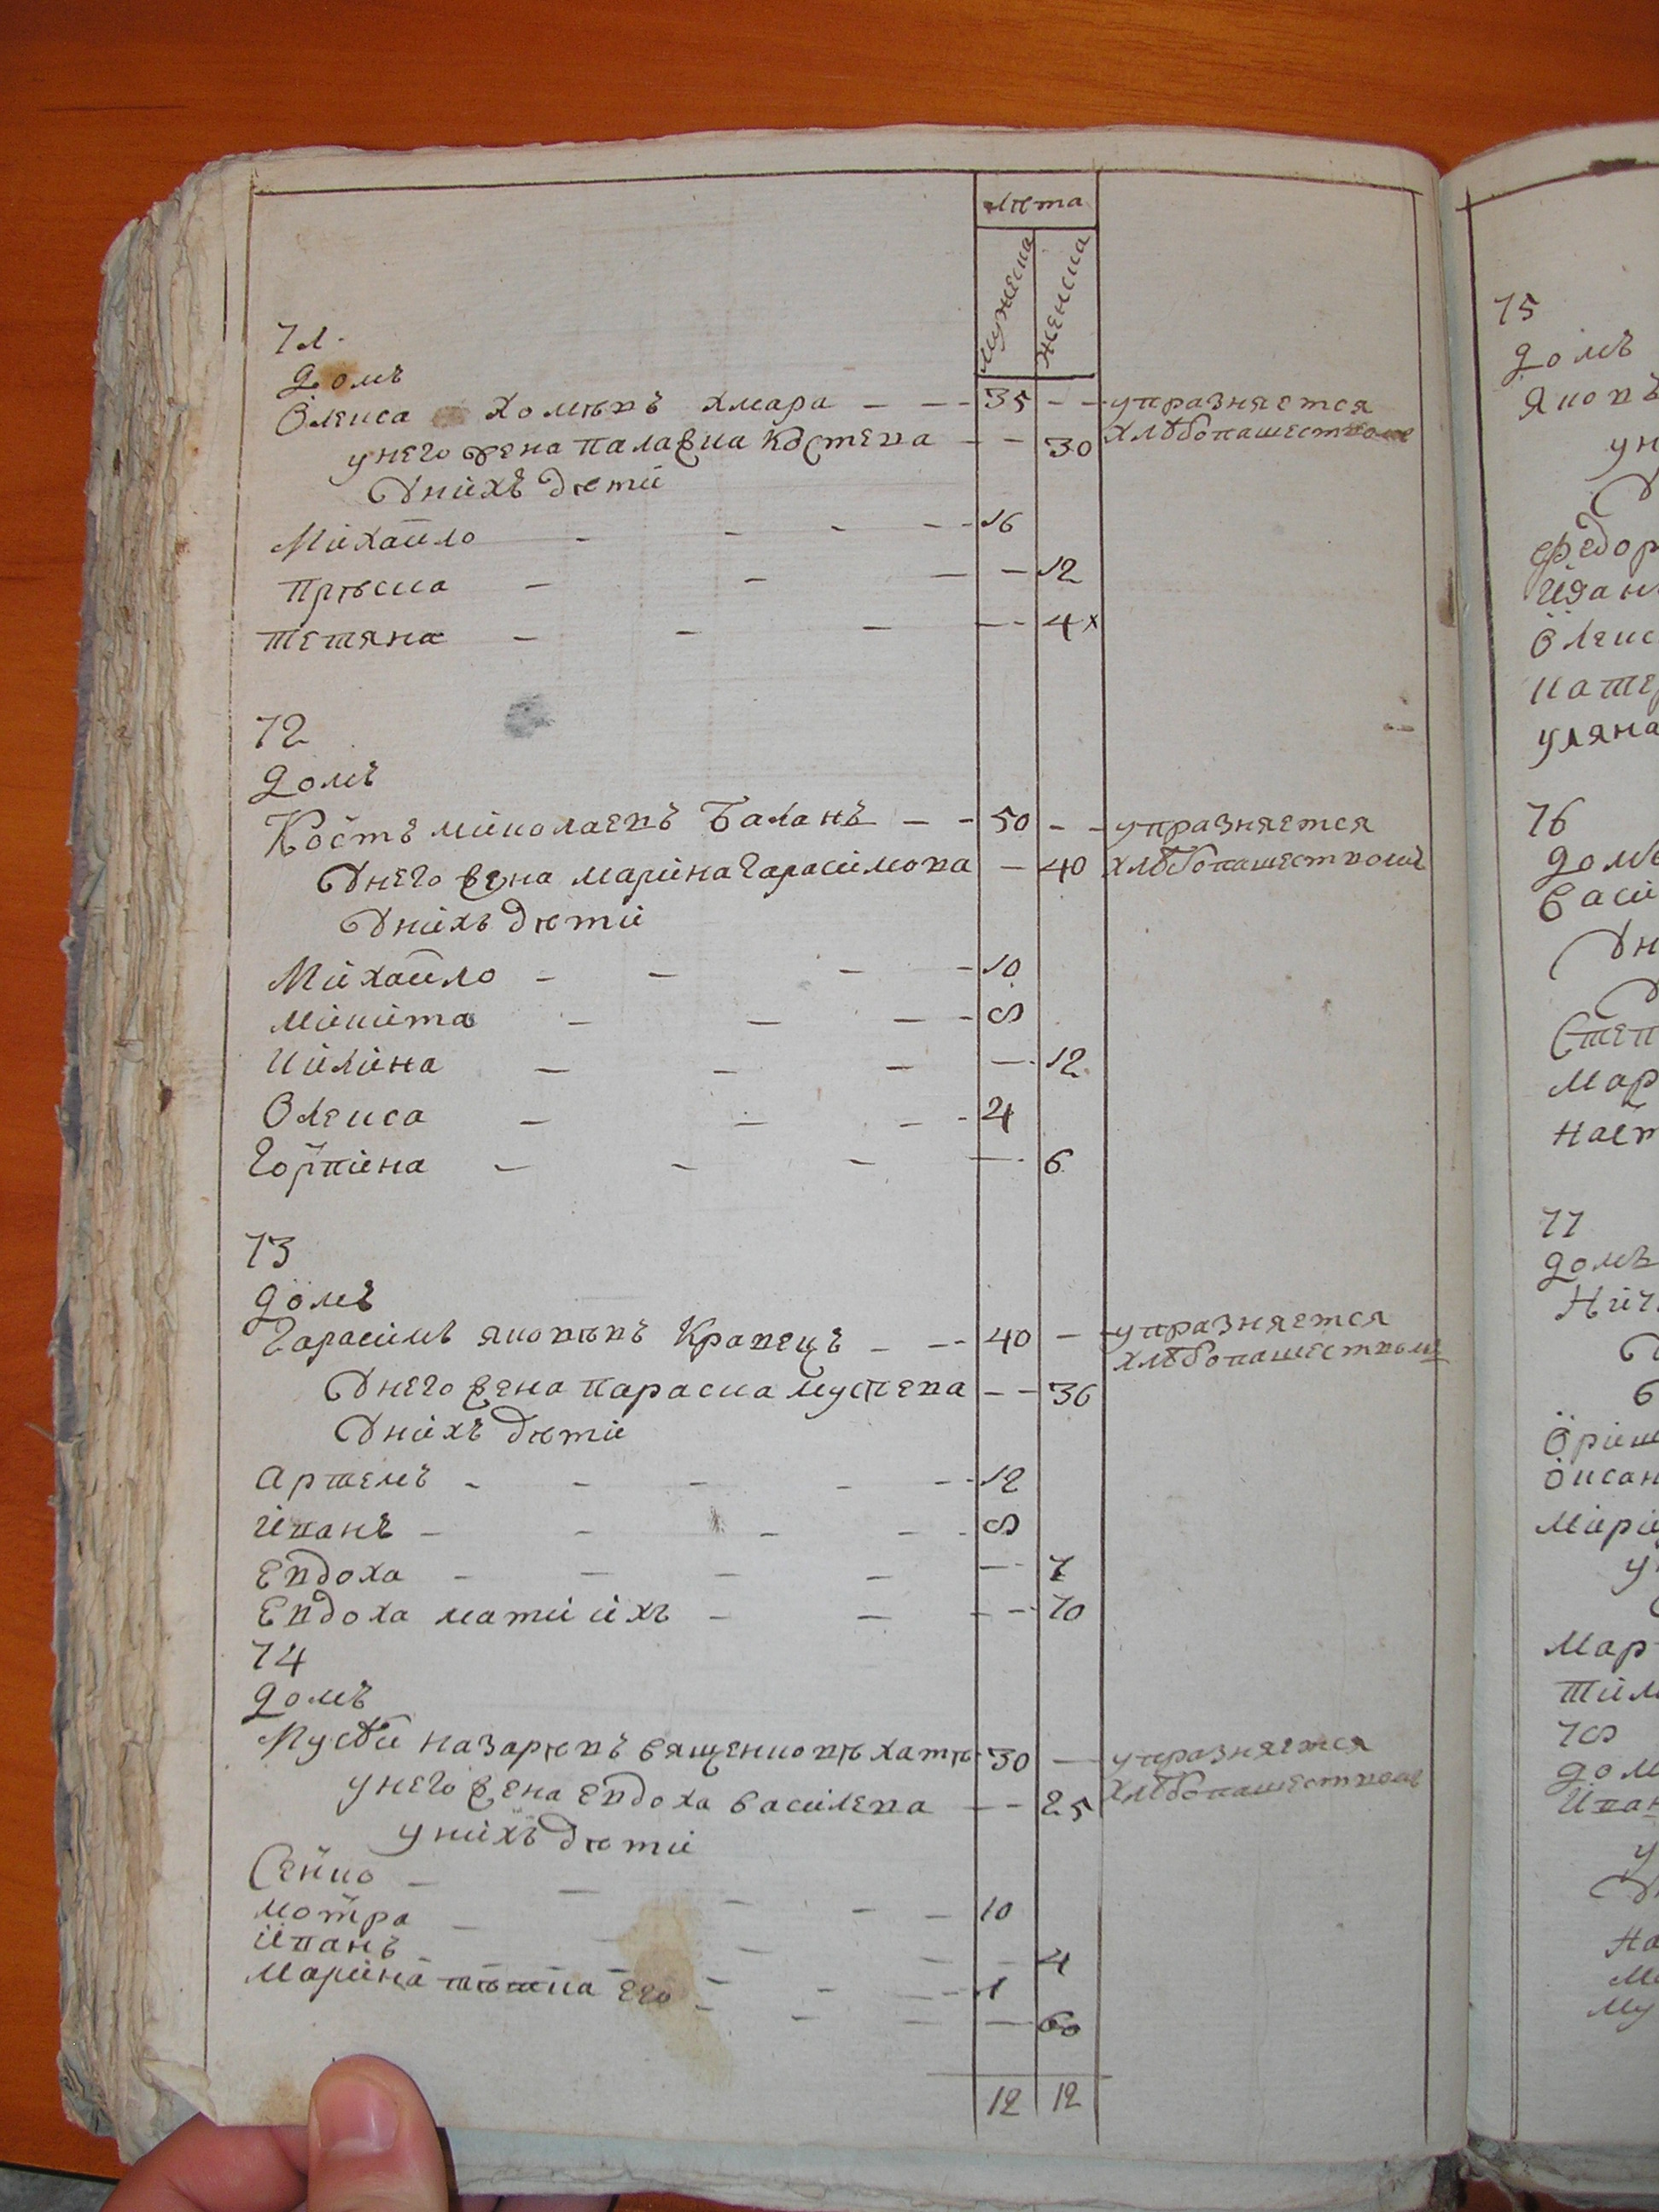 лѣта
мужеска
женска
71.
Домъ
Олекса Хомѣвъ Хмара - - 35 - - упразняется
хлѣбопашествомъ
унего жена Палажка Костева - - 30
Унихъ дѣти
Михайло - - - - 16
Прѣска - - - - 12
Тетяна - - - - 4 х
72
Домъ
Костъ Миколаевъ Баланъ - - 50 - - упразняется
Унего жена Марина Гарасимова - 40 хлѣбопашествомъ
Унихъ дѣти
Михайло - - - - 10
Микита - - - - 8
Килина - - - - 12
Олекса - - - - 4
Горпина - - - - 6
73
Домъ
Гарасимъ Яковѣвъ Кравецъ - - 40 - упразняется
хлѣбопашествомъ
Унего жена Параска Мусѣева - - 36
Унихъ дѣти
Артемъ - - - - - 12
Иванъ - - - - 8
Евдоха - - - - - 7
Евдоха мати ихъ - - - - 70
74
Домъ
Мусѣй Назарѣвъ вященковѣ хатѣ 30 - упразняется
хлѣбопашествомъ
унего жена Евдоха Василева - - 25
унихъ дѣти
Сенко - - - - - 10
Мотра - - - - - 4
Иванъ - - - - 1
Марина тѣтка его - - - - 60
12 12
75
Домъ
Яковъ
ун
Федор
Иван
Олекс
Катер
Уляна
76
Домъ
Васи
Ун
Степ
Мар
Наст
77
Домъ
Ничи
Ориш
Оксан
Мар
Тим
78
дом
Иван
На
Му